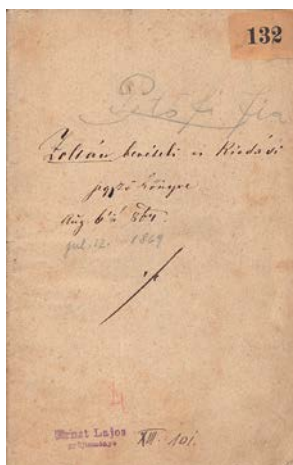 132
Petőfi fia
Zoltán bevételi és Kiadási
jegyző könyve
Aug 6
jul. 12. 1869
Ernst Lajos
gyűjteménye
XII. 101.